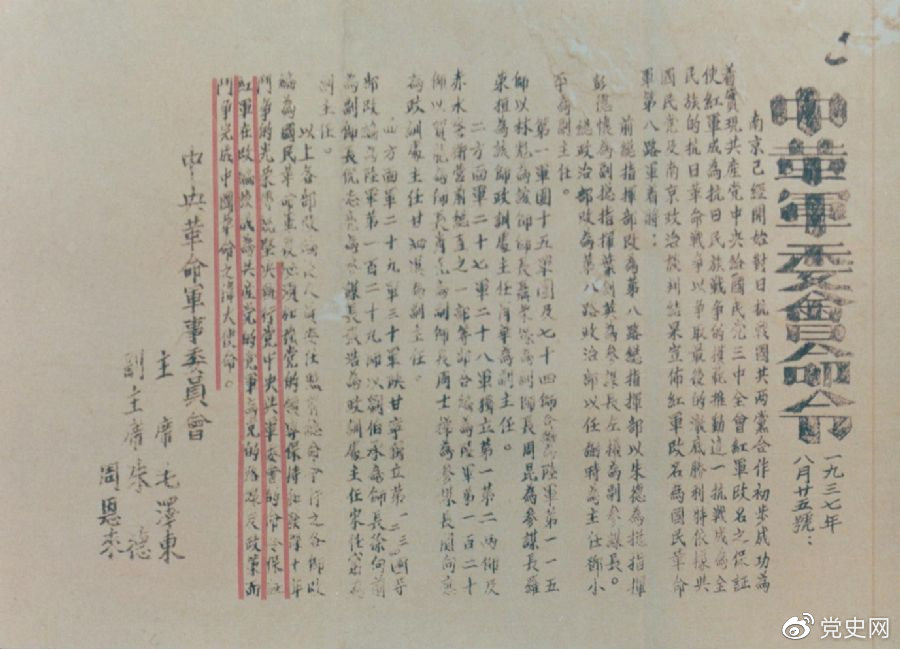 中革軍委會命令
一九三七年
八月廿五號：
南京已經開始對日抗戰國共兩黨合作初步成功為
着實現共產党中央給國民党三中全會紅軍改名之保証
使紅軍成為抗日民族戰爭的模範推動這一抗戰成為全
民族的抗日革命戰爭以爭取最後的澈底勝利特依據共
國民党及南京政治談判結果宣佈紅軍改名為國民革命
軍第八路軍着將：
前總指揮部改為第八路總指揮部以朱德為總指揮
彭德懷為副總指揮葉劍英為參謀長左權為副參謀長。
總政治部改為第八路政治部以任弼時為主任鄧小
平為副主任。
第一軍團十五軍團及七十四師合編為陸軍第一一五
師以林彪為該師師長聶榮臻為副師長周昆為參謀長羅
榮桓為該師政訓處主任蕭華為副主任。
二方面軍二十七軍二十八軍獨立第一第二兩師及
赤水警衛營前總直之一部等部合編為陸軍第一百二十
師以賀龍為師長蕭克為副師長周士梯為參謀長關向應
為政訓處主任甘泗淇為副主任。
四方面軍二十九軍三十軍陝甘寧獨立第一二三四等
部改編為陸軍第一百二十九師以劉伯承為師長徐向前
為副師長倪志亮為參謀長張浩為政訓處主任宋任窮為
副主任。
以上各部改編後人員委任照前總命令行之各師改
編為國民革命軍後必須加強党的領導保持和發揮十年
鬥爭的光榮傳統堅決執行党中央與軍委會的命令保證
紅軍在改編後成為共產党的党軍為党的路綫及政策而
鬥爭完成中國革命之偉大使命。
中央革命軍事委員會
主席毛澤東
副主席朱德
周恩來
党史网